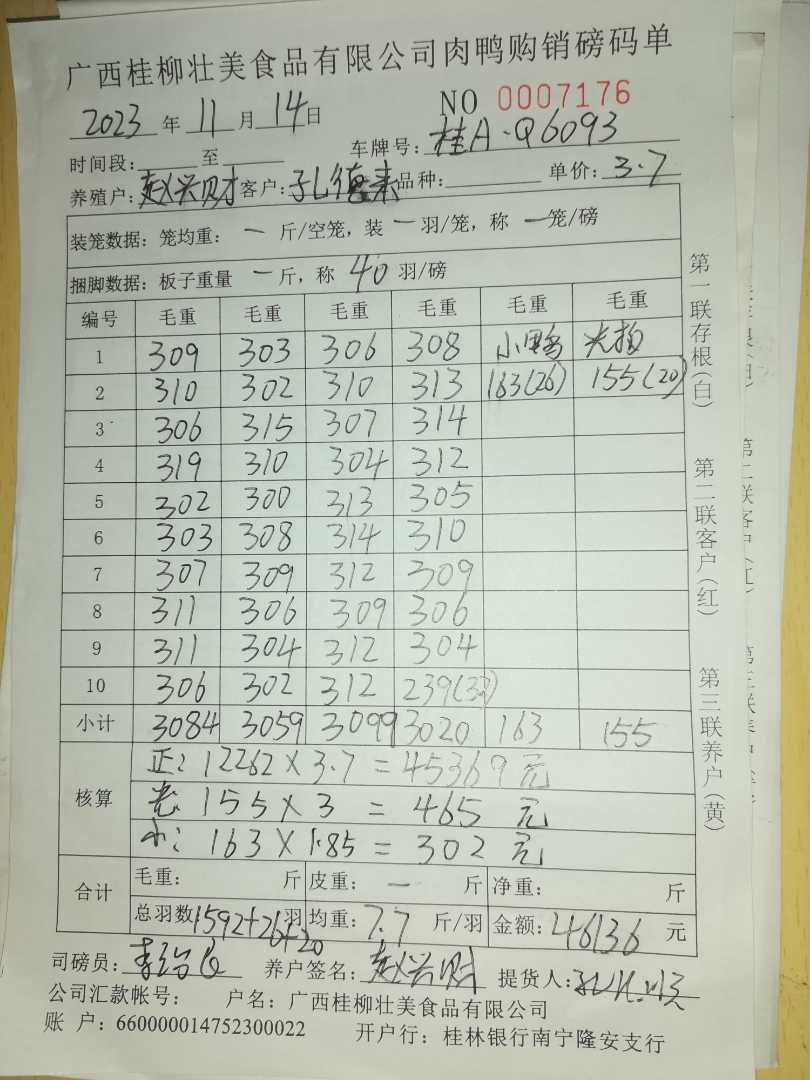 广西桂柳壮美食品有限公司肉鸭购销磅码单
2023 年 11 月 14 日 NO 0007176
时间段: 至 车牌号: 桂A·Q6093
养殖户: 赵兴财 客户: 孔德来 品种: 单价: 3.7
装笼数据: 笼均重: 一 斤/空笼, 装 一 羽/笼, 称 一 笼/磅
捆脚数据: 板子重量 一 斤, 称 40 羽/磅
编号 毛重 毛重 毛重 毛重 毛重 毛重
1 309 303 306 308 小鸭
2 310 302 310 313 163(26) 155(20)
3 306 315 307 314
4 319 310 304 312
5 302 300 313 305
6 303 308 314 310
7 307 309 312 309
8 311 306 309 306
9 311 304 312 304
10 306 302 312 239(32)
小计 3084 3059 3099 3020 163 155
核算 正: 12262 × 3.7 = 45369 元
155 × 3 = 465 元
小: 163 × 1.85 = 302 元
合计 毛重: 斤 皮重: 一 斤 净重: 斤
总羽数 1592+26+20 羽 均重: 7.7 斤/羽 金额: 46136 元
司磅员: 养户签名: 赵兴财 提货人:
公司汇款帐号: 户名: 广西桂柳壮美食品有限公司
账 户: 660000014752300022 开户行: 桂林银行南宁隆安支行
第一联存根(白) 第二联客户(红) 第三联养户(黄)